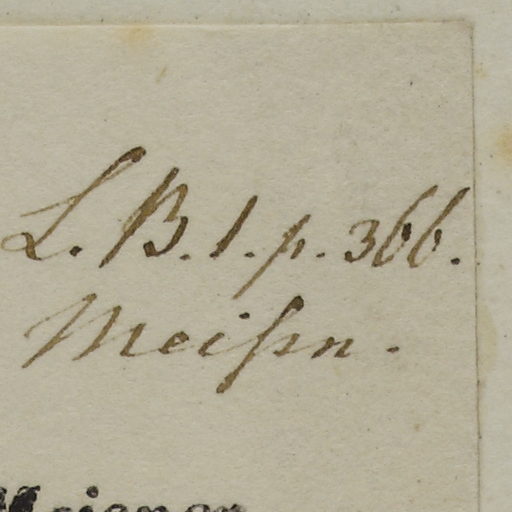 L. B. 1. p. 366.
Meissn.